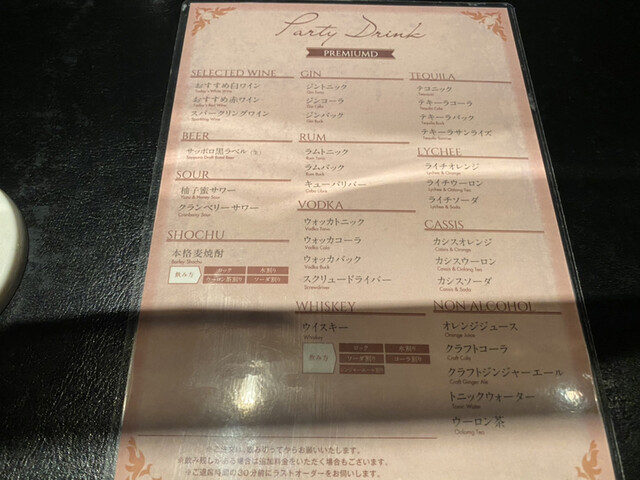 Party Drink
PREMIUMD
SELECTED WINE
おすすめ白ワイン
Today's White Wine
おすすめ赤ワイン
Today's Red Wine
スパークリングワイン
Sparkling Wine
BEER
サッポロ黒ラベル (生)
Sapporo Draft Black Beer
SOUR
柚子蜜サワー
Yuzu & Honey Sour
クランベリーサワー
Cranberry Sour
SHOCHU
本格麦焼酎
Barley Shochu
飲み方
ロック
水割り
ウーロン茶割り
ソーダ割り
GIN
ジントニック
Gin Tonic
ジンコーラ
Gin Cola
ジンバック
Gin Buck
RUM
ラムトニック
Rum Tonic
ラムバック
Rum Buck
キューバリバー
Cuba Libre
VODKA
ウォッカトニック
Vodka Tonic
ウォッカコーラ
Vodka Cola
ウォッカバック
Vodka Buck
スクリュードライバー
Screwdriver
WHISKEY
ウイスキー
Whiskey
飲み方
ロック
水割り
ソーダ割り
コーラ割り
ジンジャーエール割り
TEQUILA
テコニック
Tequonic
テキーラコーラ
Tequila Cola
テキーラバック
Tequila Buck
テキーラサンライズ
Tequila Sunrise
LYCHEE
ライチオレンジ
Lychee & Orange
ライチウーロン
Lychee & Oolong Tea
ライチソーダ
Lychee & Soda
CASSIS
カシスオレンジ
Cassis & Orange
カシスウーロン
Cassis & Oolong Tea
カシスソーダ
Cassis & Soda
NON ALCOHOL
オレンジジュース
Orange Juice
クラフトコーラ
Craft Cola
クラフトジンジャーエール
Craft Ginger Ale
トニックウォーター
Tonic Water
ウーロン茶
Oolong Tea
飲み切ってからお願いいたします。
※飲み残しがある場合は追加料金をいただく場合もございます。
※ご退席時間の30分前にラストオーダーをお伺いします。